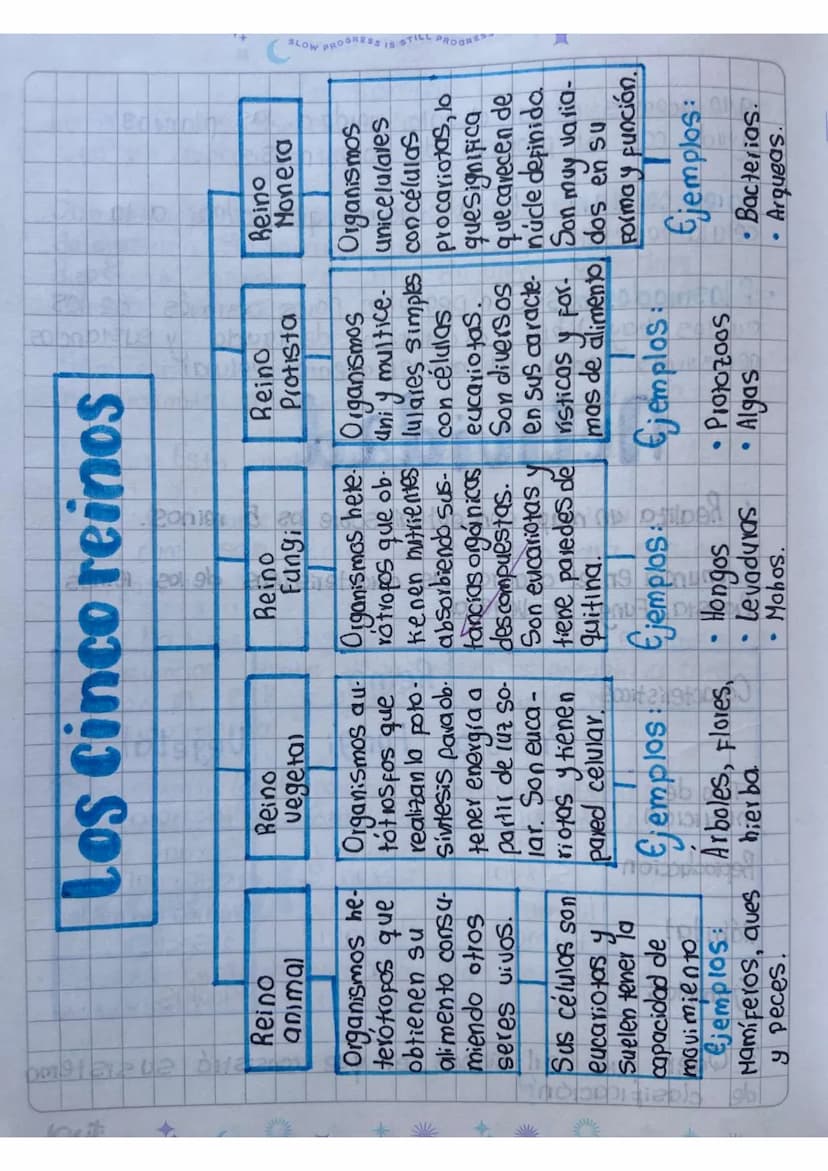 SLOW PROGRESS IS STILL PROGRESS
Los cinco reinos
Reino
animal
Organismos he-
terótofos que
obtienen su
alimento consu-
miendo otros
seres vivos.
Sus células son
eucariotas y
suelen tener la
capacidad de
movimiento
Ejemplos:
Mamíferos, aves
y peces.
Reino
vegetal
Organismos au-
tótrosfos que
realizan la foto-
síntesis para ob-
tener energía a
partir de luz so-
lar. Son euca-
riotas y tienen
pared celular.
Ejemplos:
Árboles, Flores,
hierba.
Reino
Fungi
Organismos hete-
rótrofos que ob-
tienen nutrientes
absorbiendo sus-
tancias orgánicas
descompuestas.
Son eucariotas y
tiene paredes de
quitina.
Ejemplos:
• Hongos
• Levaduras
• Mohos.
Reino
Protista
Organismos
uni y multice-
lulares simples
con células
eucariotas.
Son diversos
en sus caracte-
rísticas y for-
mas de alimento
Ejemplos:
• Protozoos
• Algas
Reino
Monera
Organismos
unicelulares
con células
procariotas, lo
que significa
que carecen de
núcle definido.
Son muy varia-
dos en su
forma y función.
Ejemplos:
• Bacterias.
• Arqueas.